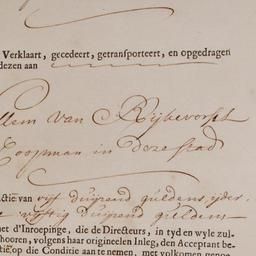 Verklaart, gecedeert, getransporteert, en opgedragen
dezen aan
llem Van Rijkevorsel
Coopman in deze stad
ctie van vijf duijzend guldens, ijder
vijftig duijzend guldens
et d'Inroepinge, die de Directeurs, in tyd en wyle zul-
hooren, volgens haar origineelen Inleg, den Acceptant be-
tie, op die Conditie aan te nemen, met volkomen genoe-